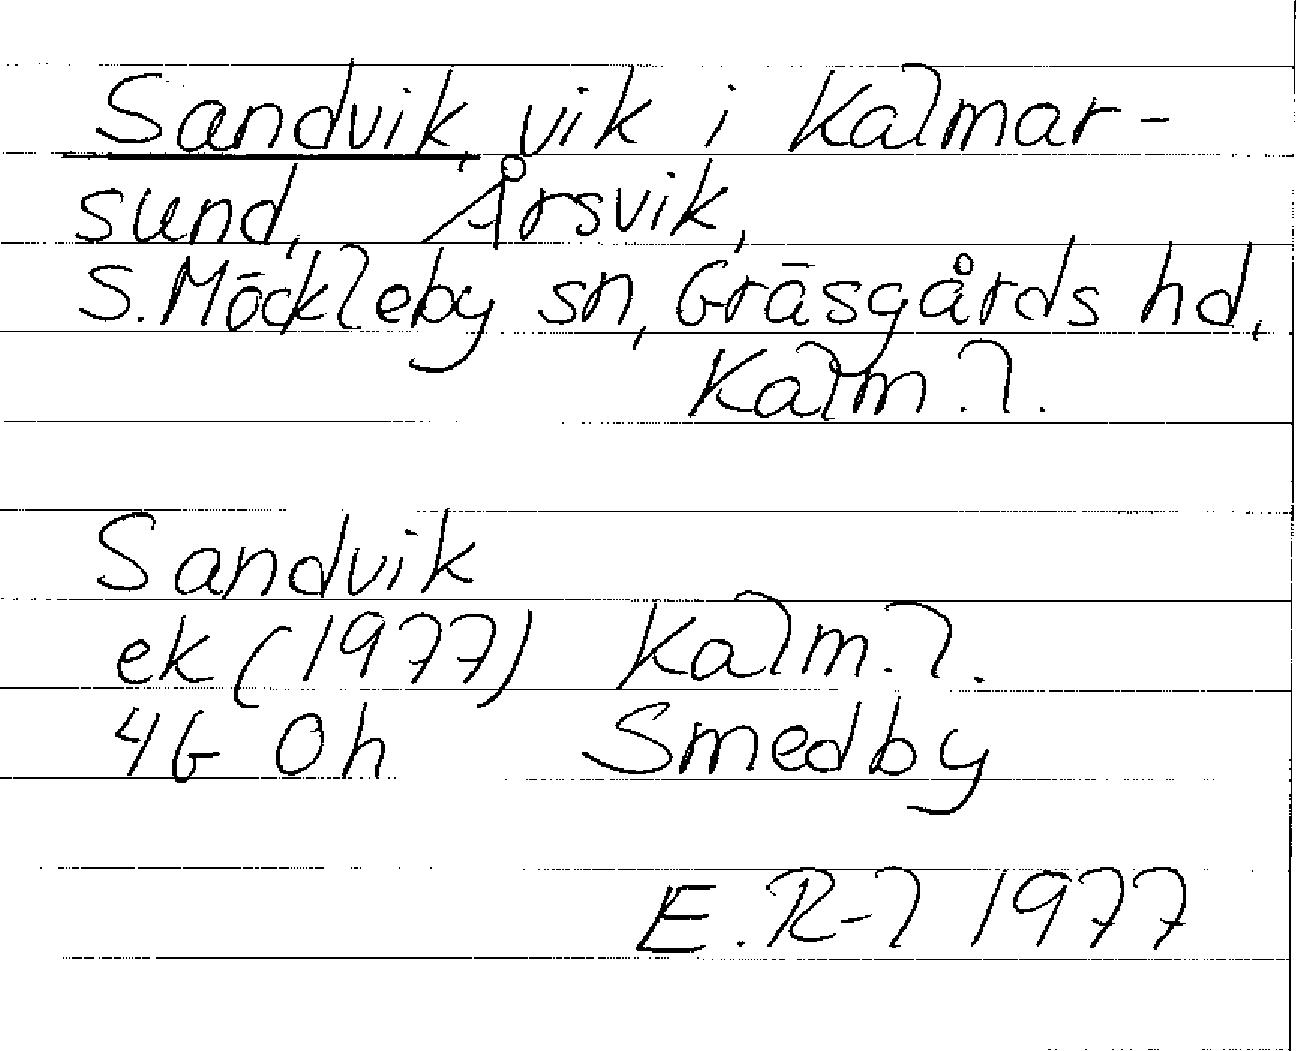 Sandvik, vik i Kalmar-
sund, Årsvik,
S. Möckleby sn, Gräsgårds hd,
Kalm. l.
Sandvik
ek (1977) Kalm. l.
4G 0h Smedby
E. R-l 1977